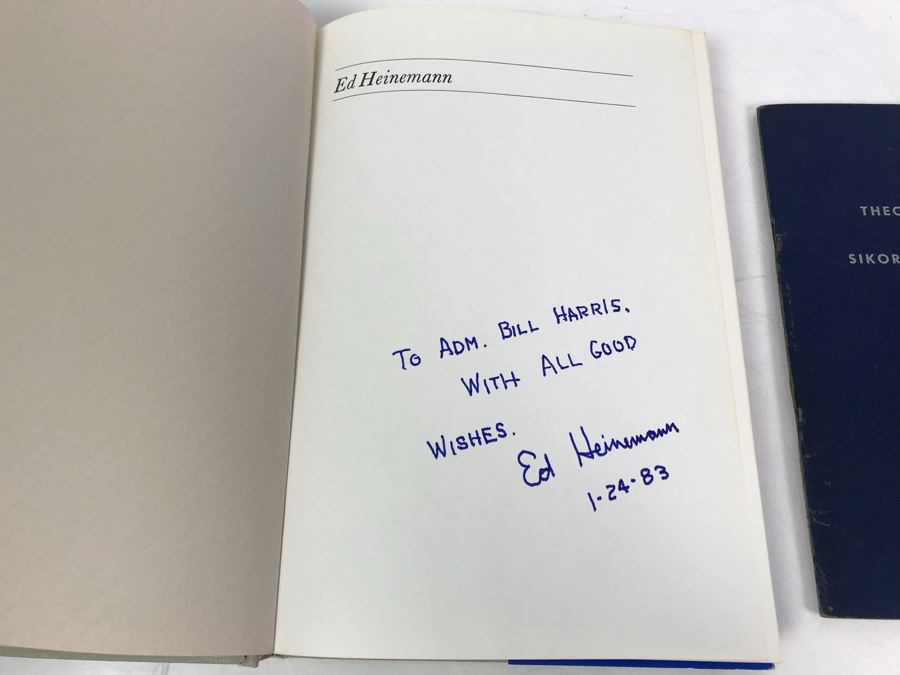 Ed Heinemann
TO ADM. BILL HARRIS.
WITH ALL GOOD
WISHES.
Ed Heinemann
1-24-83
THEO
SIKOR